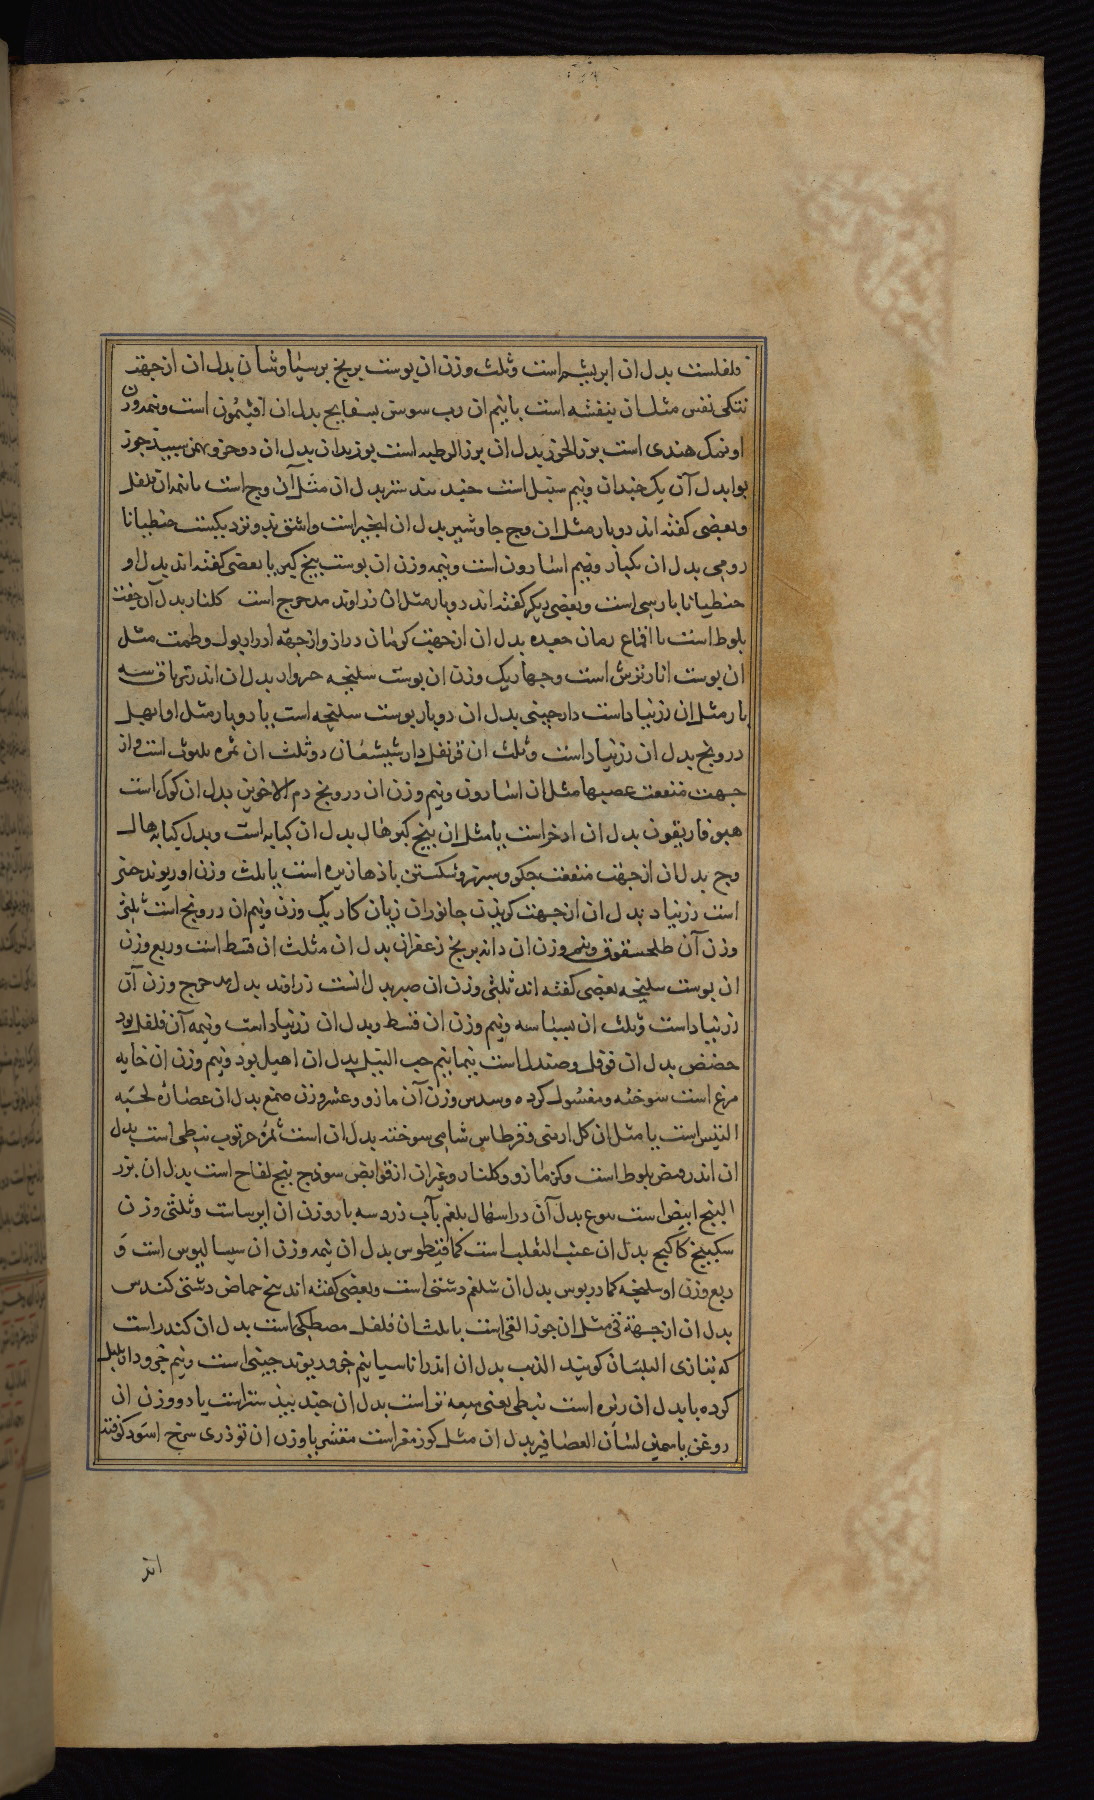 فلفلست بدل ان ابریشم است وثلث وزن ان پوست برنج برسیاوشان بدل ان ازجهت
تنکی نفس مثل ان بنفشه است بانیم ان رب سوس بسفایج بدل ان افیثمون است ونیم وزن
او نمک هندی است بزر الخوز بدل ان بوزیدان بدل ان دوحزو بهمن سپید جوز
بوا بدل آن یک چندان ونیم سنبل است جند بیدستر بدل ان مثل آن وج است بانیم ان فلفل
وبعضی کفته اند دوبار مثل ان وج جاوشیر بدل ان انجیر است واشق نیز ونزدیکیست جنطیانا
رومی بدل ان یکبار ونیم اسارون است ونیمه وزن ان پوست بیخ کبر یا بعضی کفته اند بدل او
جنطیانا پارسی است وبعضی دیکر کفته اند دوبار مثل ان زراوند مدحرج است کلنار بدل آن جفت
بلوط است با اقماع رمان جعده بدل ان ازجهت کرمان دراز وازجهة ادرار بول وطمث مثل
ان پوست انار ترش است وچهار یک وزن ان پوست سلیخه بدل ان اندر تریاق سه
بار مثل ان زرنباد است دارچینی بدل ان دوبار پوست سلیخه است یا دوبار مثل او ابهل
درونج بدل ان زرنباد است وثلث ان قرنفل دارشیشعان دوثلث ان ثمره است واز
جهت منفعت عصبها مثل ان اسارون ونیم وزن ان درونج دم الاخوین بدل ان کوک است
هیوفاریقون بدل ان اذخر است یا مثل ان بیخ کبر هال بدل ان کبابه است وبدل کبابه هال
وج بدل ان ازجهت منفعت جکر وسپرز وشکستن بادها زیره است باثلث وزن او ریوند چینی
است زرنباد بدل ان ازجهت کزیدن جانوران زیان کار یک وزن ونیم ان درونج است ثلثی
وزن آن ونیم وزن ان دانه برنج زعفران بدل ان مثلث ان قسط است وربع وزن
ان پوست سلیخه بعضی کفته اند ثلثی وزن ان صبر بدل انست زراوند بدل مدحرج وزن آن
زرنباد است وثلث ان بسباسه ونیم وزن ان قسط وبدل ان زرنباد است ونیمه آن فلفل بود
حضض بدل ان فوفل وصندل است نیمانیم حب النیل بدل ان اهیل بود ونیم وزن ان خایه
مرغ است سوخته ومغسول کرده وسدس وزن آن مازو وعشر وزن صمغ بدل ان عصاره لحیه
التیس است یا مثل ان کل ارمنی وقرطاس شامی سوخته بدل ان است ثمره خرنوب نبطی است بدل
ان اندر بلوط است وکزمازو وکلنار وغیر ان از قوابض سوذج بیخ لفاح است بدل ان بزر
البنج ابیض است بدل آن در اسهال بلغم باب زرد سه بار وزن ان ایرساست وثلثی وزن
سکبینج کاکنج بدل ان عنب الثعلب است کمافیطوس بدل ان نیمه وزن ان سیسالیوس است و
ربع وزن او سلیخه کمادریوس بدل ان شلغم دشتی است وبعضی کفته اند بیخ حماض دشتی کندس
بدل ان ازجهة قی مثل ان جوز القی است باثلث ان فلفل مصطکی است بدل ان کندر است
که بتازی البلسان کویند بدل ان اندر اناسیا نیم جزو ریوند چینی است ونیم جزو دار فلفل
کرده یا بدل ان است نبطی یعنی میعه تر است بدل ان جند بیدستر است یا دو وزن ان
روغن یاسمین لسان العصافیر بدل ان مثل کوز مغز است مقشر یا وزن ان توذری سرخ اسود کوفته
اند